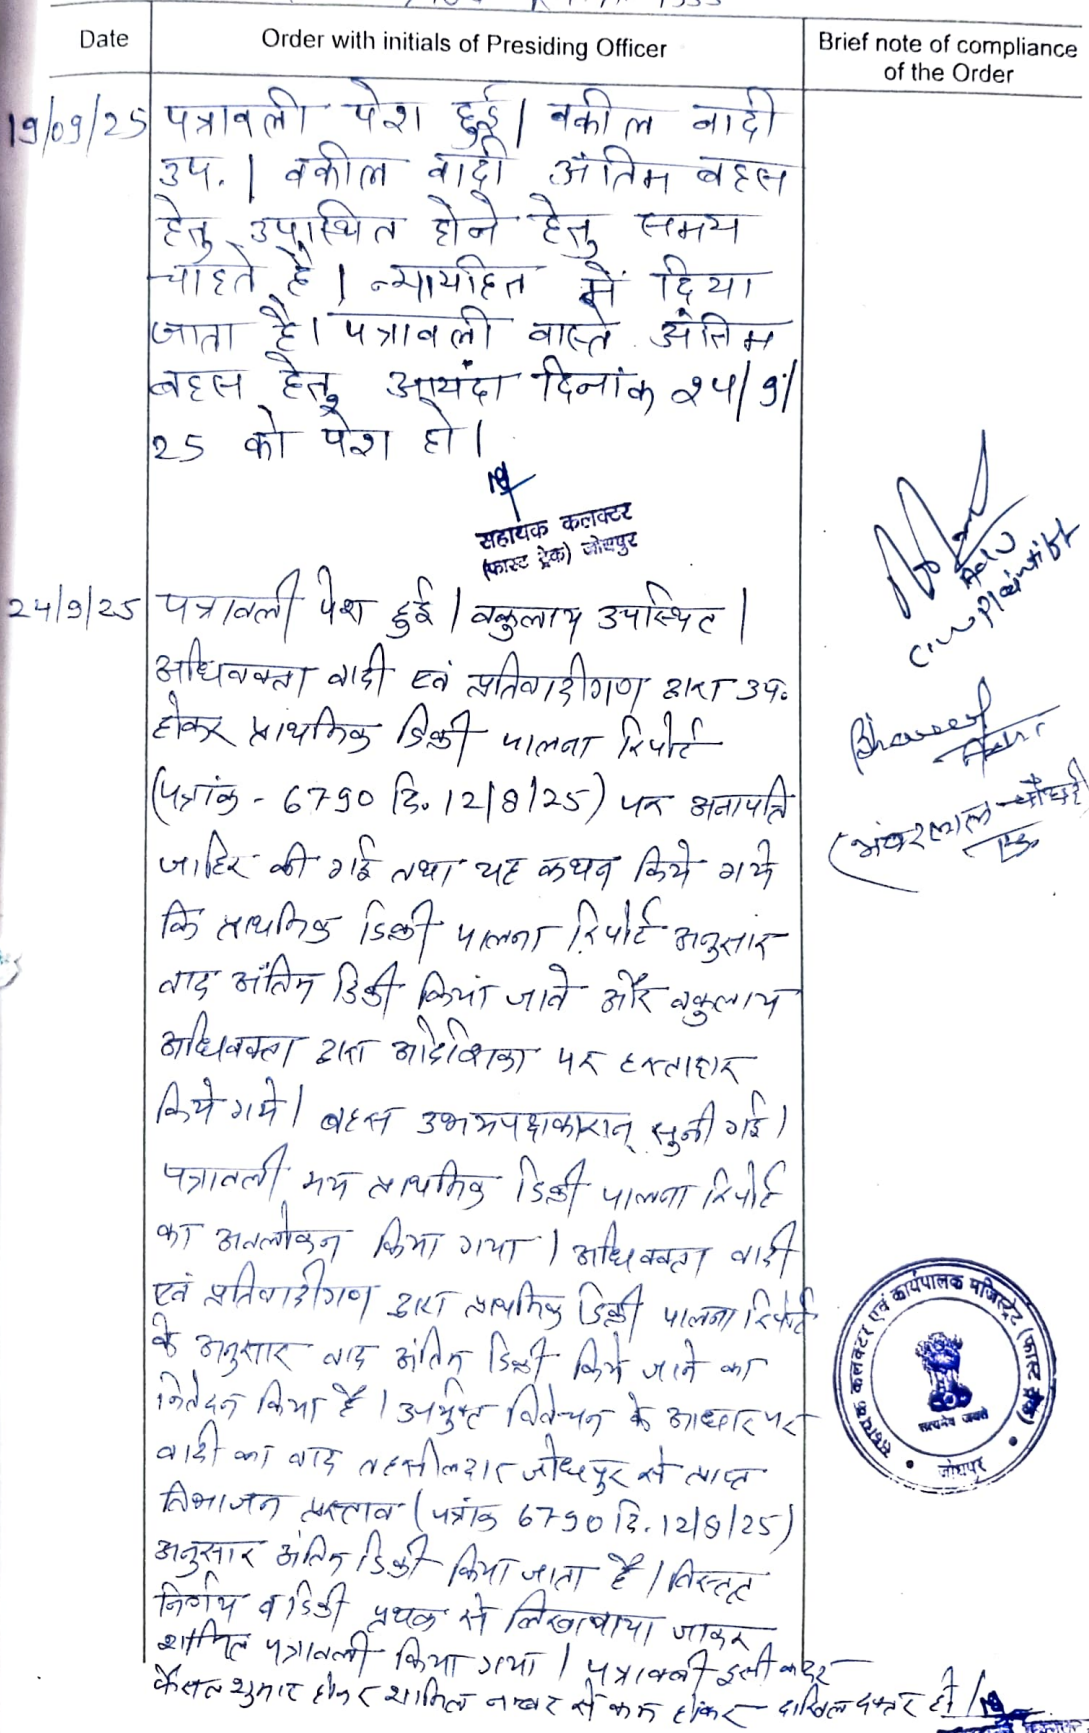 Date
Order with initials of Presiding Officer
Brief note of compliance
of the Order
19/09/25
पत्रावली पेश हुई। वकील वादी
उप.। वकील वादी अंतिम बहस
हेतु उपस्थित होने हेतु समय
चाहते है। न्यायहित में दिया
जाता है। पत्रावली वास्ते अंतिम
बहस हेतु आयंदा दिनांक २4/9/
25 को पेश हो।
सहायक कलक्टर
(फास्ट ट्रेक) जोधपुर
Adv
24/9/25
पत्रावली पेश हुई। वकुलाय उपस्थित।
अधिवक्ता वादी एवं प्रतिवादीगण द्वारा उप.
होकर प्राथमिक डिक्री पालना रिपोर्ट
(पत्रांक - 6790 दि. 12/8/25) पर अनापति
जाहिर की गई तथा यह कथन किये गये
कि प्राथमिक डिक्री पालना रिपोर्ट अनुसार
वाद अंतिम डिक्री किया जावे और वकुलाय
अधिवक्ता द्वारा आदेशिका पर हस्ताक्षर
किये गये। बहस उभयपक्षकारान् सुनी गई।
पत्रावली मय प्राथमिक डिक्री पालना रिपोर्ट
का अवलोकन किया गया। अधिवक्ता वादी
एवं प्रतिवादीगण द्वारा प्राथमिक डिक्री पालना रिपोर्ट
के अनुसार वाद अंतिम डिक्री किये जाने का
निवेदन किया है। उपर्युक्त विवेचन के आधार पर
वादी का वाद तहसीलदार जोधपुर से प्राप्त
विभाजन प्रस्ताव (पत्रांक 6790 दि. 12/8/25)
अनुसार अंतिम डिक्री किया जाता है। विस्तृत
निर्णय व डिक्री पृथक से लिखवाया जाकर
शामिल पत्रावली किया गया। पत्रावली इसी कदर
फैसल शुमार होकर शामिल नम्बर से कम होकर दाखिल दफ्तर हो।
भंवरलाल चौधरी
सहायक कलक्टर एवं कार्यपालक मजिस्ट्रेट (फास्ट ट्रेक)
सत्यमेव जयते
जोधपुर